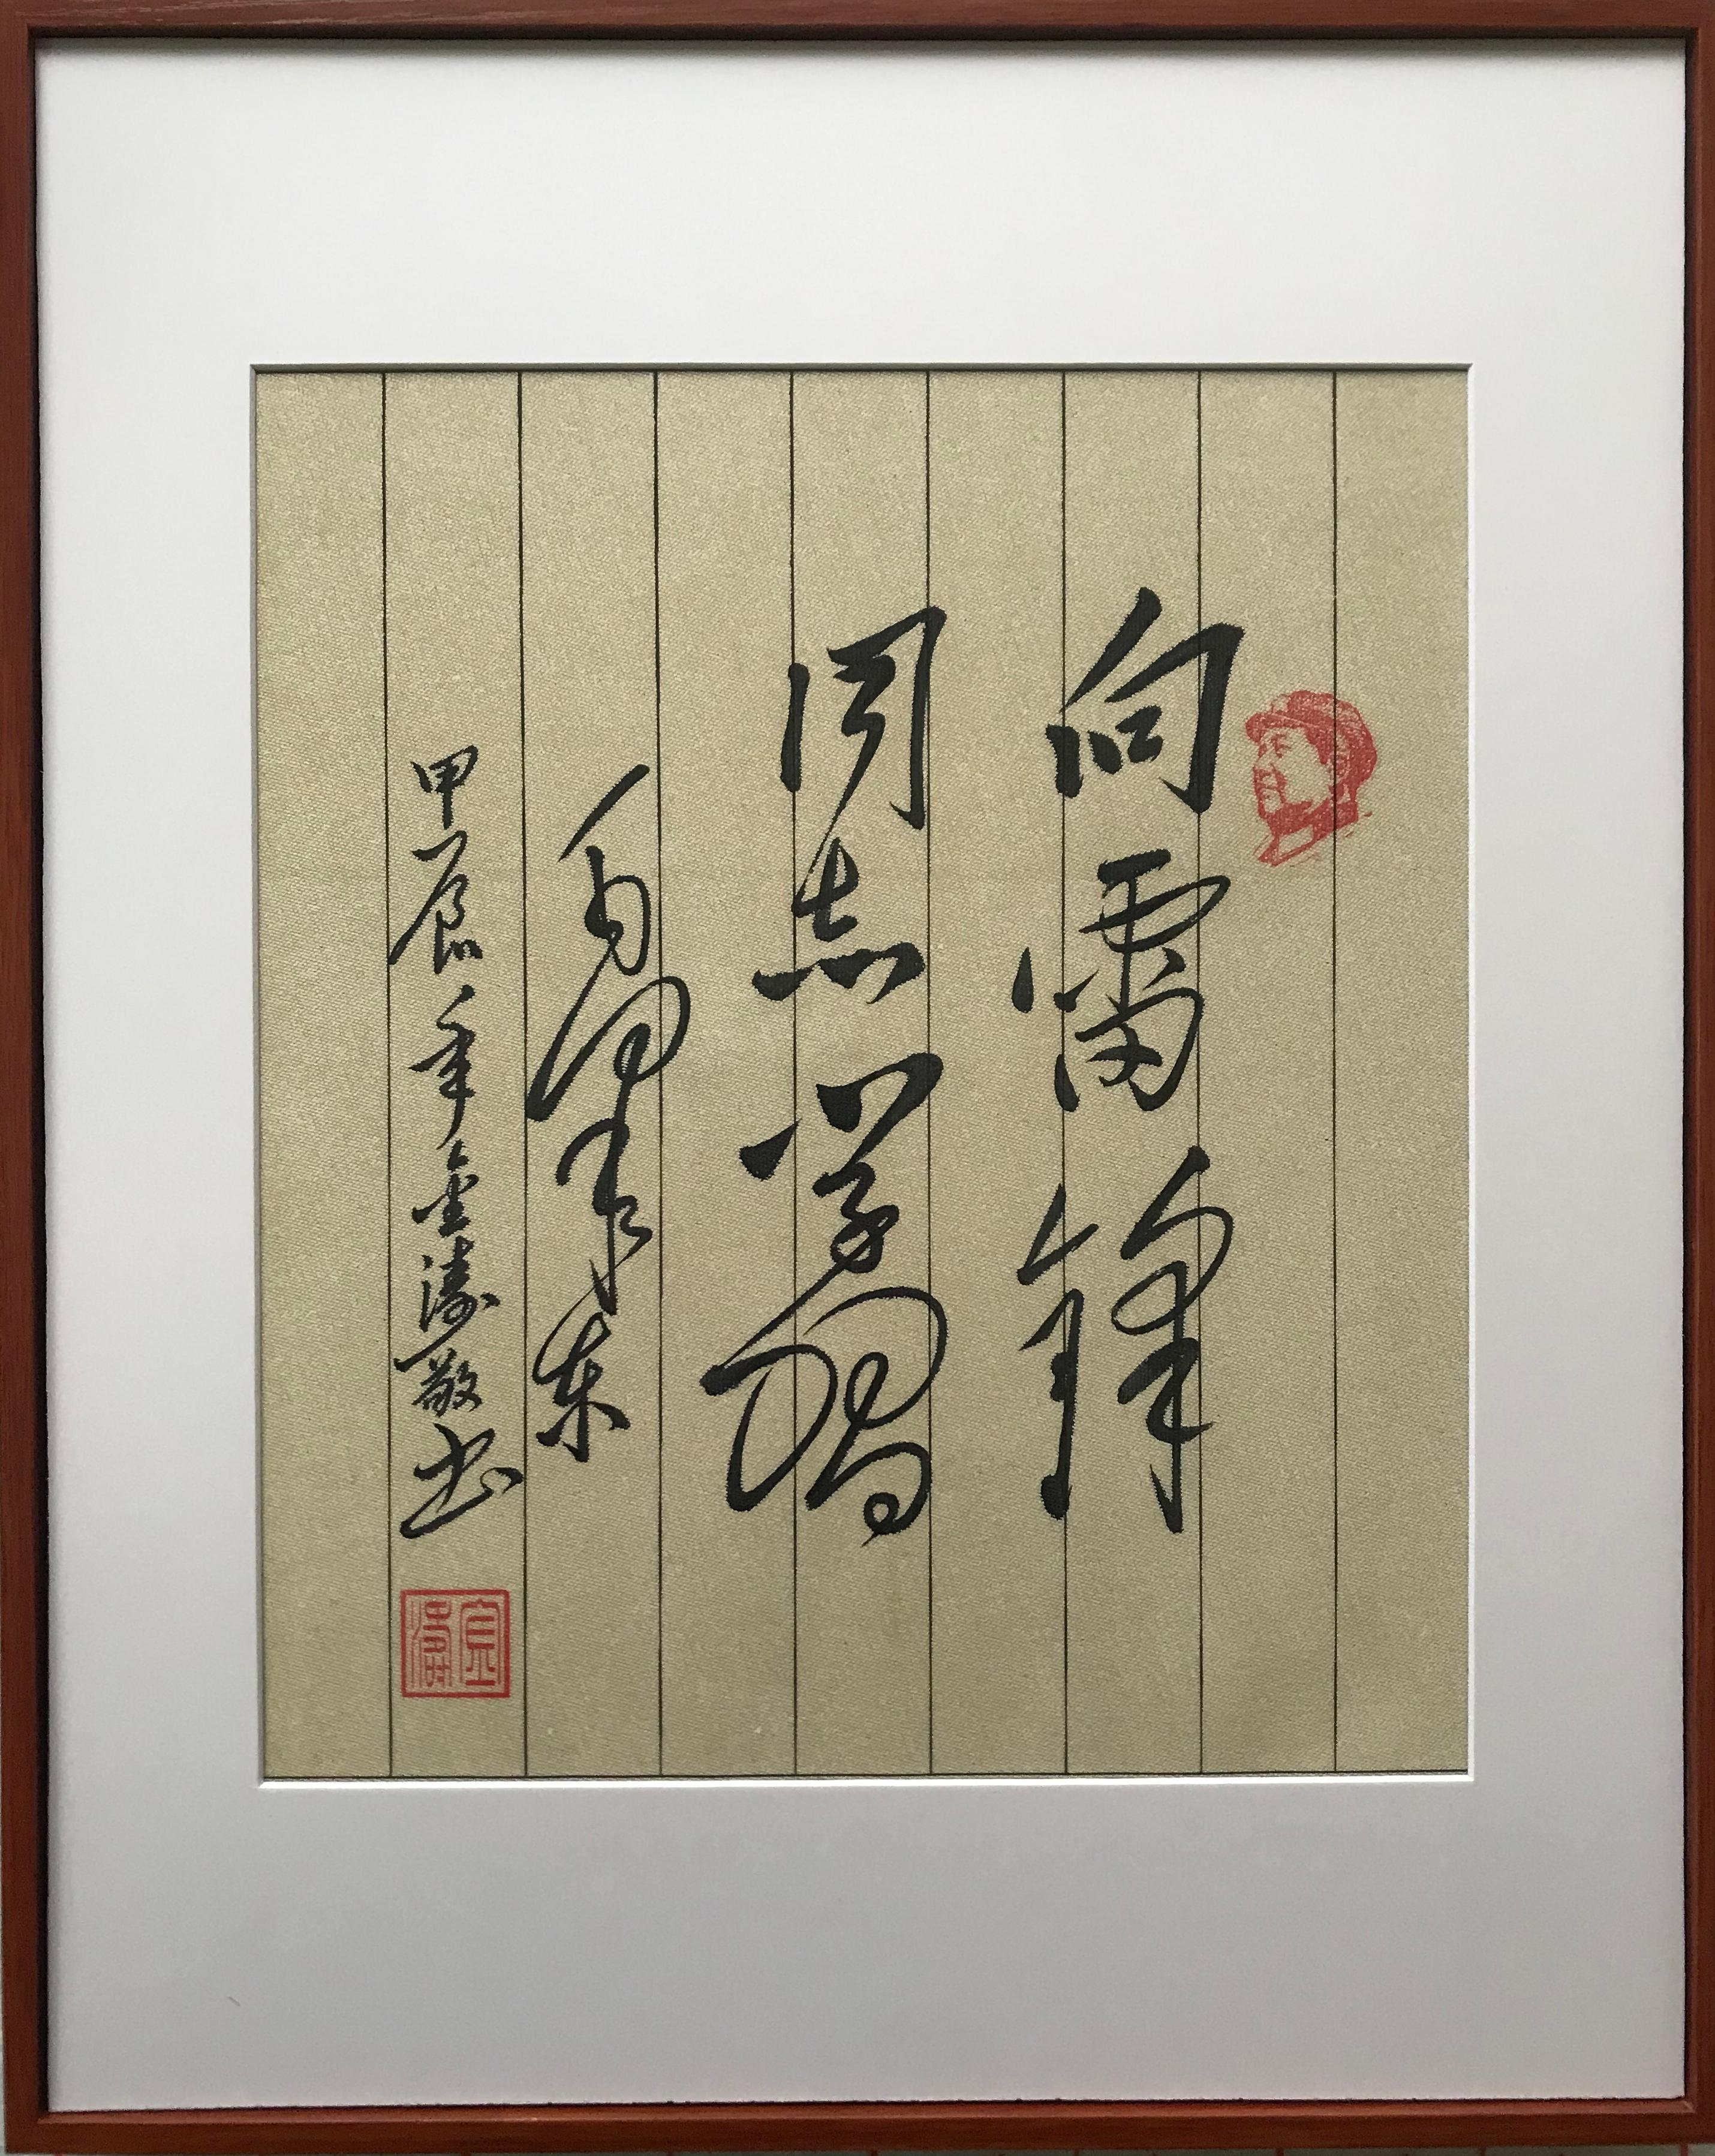 向雷锋
同志学习
毛泽东
甲辰年金涛敬书